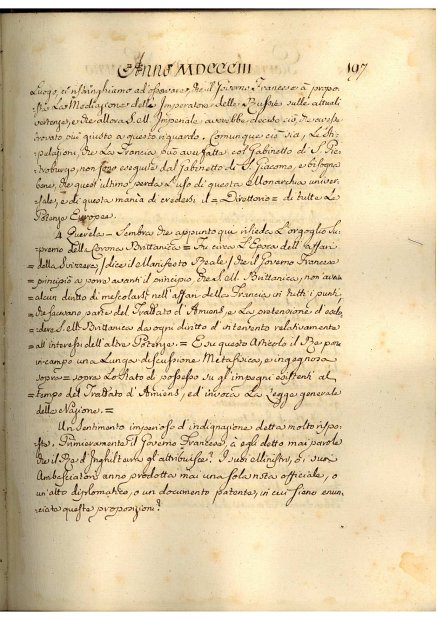 Anno MDCCCIII 197
Luogo, ci ristringhiamo ad osservare, che il Governo Francese à propo-
sto La Mediazione dello Imperatore delle Russie sulle attuali
vertenze, e che allora S. M. Imperiale avrebbe deciso ciò, che avesse
trovato più giusto a questo riguardo. Comunque ciò sia, Le Sti-
pulazioni, che La Francia può aver fatta col Gabinetto di S. Pie-
troburgo, non sono eseguite dal Gabinetto di S. Giacomo, e bisogna
bene, che quest'ultimo perda L'uso di questa Monarchia univer-
sale, e di questa mania di credersi il = Direttorio = di tutte Le
Potenze Europee.
4 Querela - Sembra che appunto quì risieda L'orgoglio Su-
premo della Corona Brittanica = Fu circa L'Epoca dell'affari
della Svizzera / dice il Manifesto Reale / che il Governo Francese
principiò a porre avanti il principio, che S. M. Brittanica, non aveva
alcun diritto di mescolarsi nell'affari della Francia in tutti i punti
che facevano parte del Trattato d'Amiens, e La pretenzione d'esclu-
dere S. M. Brittanica da ogni diritto d'intervento relativamente
all'interessi dell'altre Potenze. = E su questo Articolo il Re pone
in campo una Lunga discussione Metafisica, e ingegnosa
sopra = sopra Lo Stato di possesso su gl'impegni esistenti al
tempo del Trattato d'Amiens, ed invoca La Legge generale
delle Nazione. =
Un Sentimento imperioso d'indignazione detta molto rispo-
ste. Primieramente il Governo Francese, à egli detto mai parole
che il Re d'Inghilterra gli attribuisce? I suoi Ministri, ò i suoi
Ambasciatori anno prodotta mai una sola nota officiale, o
un'atto diplomatico, o un documento patente, in cui sieno enun-
ciate queste proposizioni?